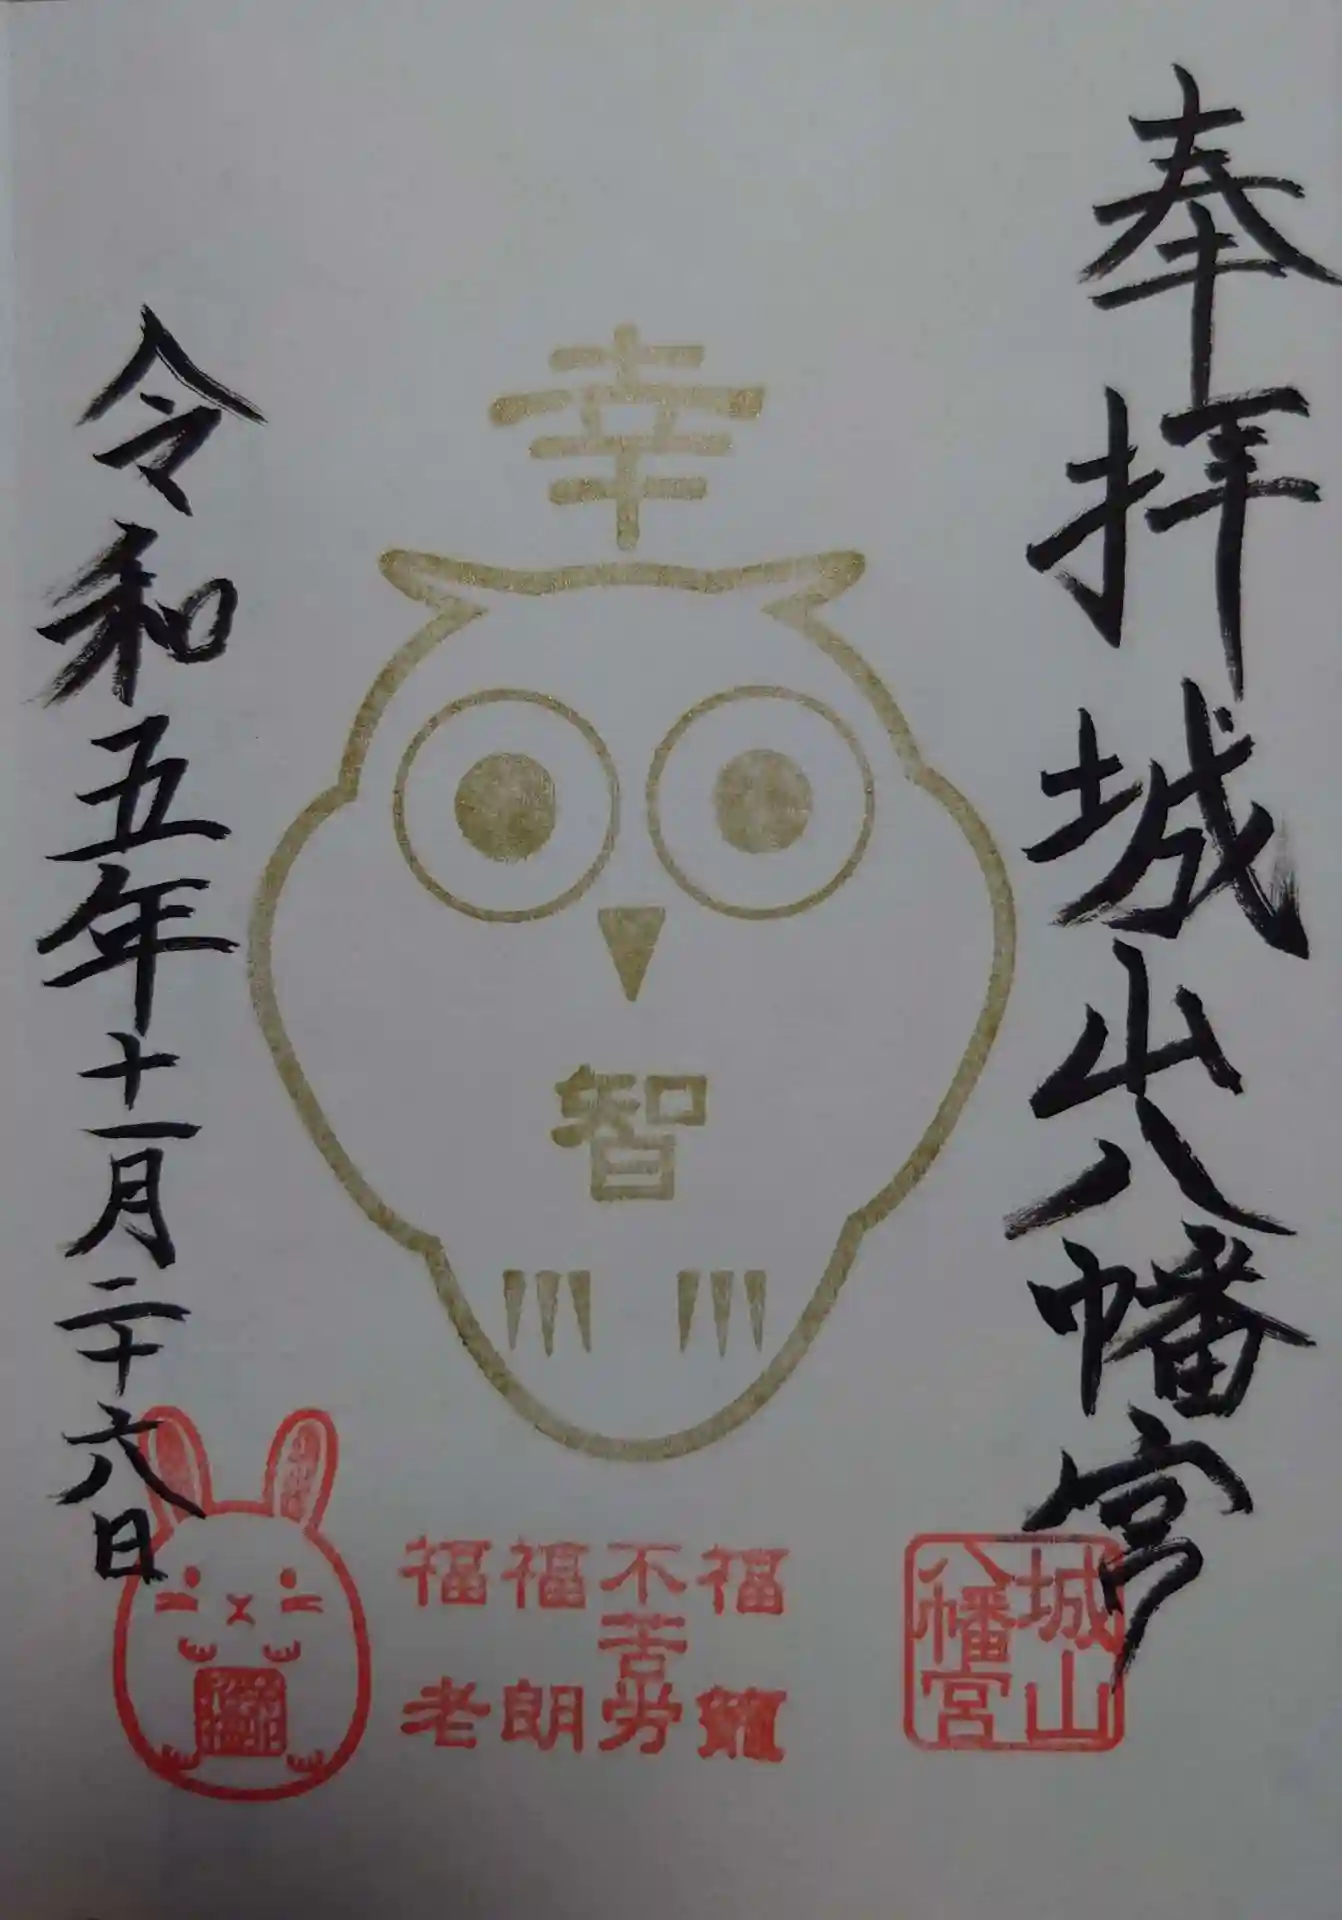 奉拝城山八幡宮
幸
智
福籠
不苦労
福朗
福老
城山
八幡宮
令和五年十一月二十六日